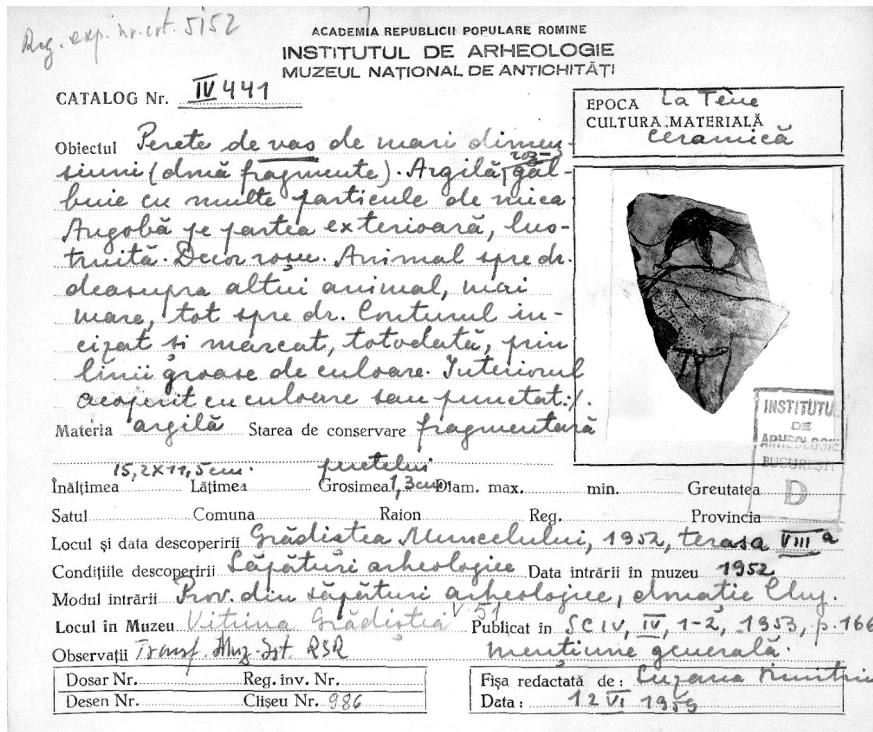 Reg. exp. nr. crt. 5152
ACADEMIA REPUBLICII POPULARE ROMINE
INSTITUTUL DE ARHEOLOGIE
MUZEUL NAȚIONAL DE ANTICHITĂȚI
CATALOG Nr. IV 441
EPOCA La Tène
CULTURA MATERIALĂ
ceramică
Obiectul Perete de vas de mari dimen-
siuni (două fragmente). Argilă roz-găl-
buie cu multe particule de mica
Angobă pe partea exterioară, lus-
truită. Decor roșu. Animal spre dr.
deasupra altui animal, mai
mare, tot spre dr. Conturul in-
cizat și marcat, totodată, prin
linii groase de culoare. Interiorul
acoperit cu culoare sau punctat :/.
INSTITUTU
DE
ARHEOLOGIE
BUCUREȘTI
D
Materia argilă Starea de conservare fragmentară
15,2x11,5cm. peretelui
Înălțimea Lățimea Grosimea 1,3cm Diam. max. min. Greutatea
Satul Comuna Raion Reg. Provincia
Locul și data descoperirii Grădiștea Muncelului, 1952, terasa VIII a
Condițiile descoperirii Săpături arheologice Data intrării în muzeu 1952
Modul intrării Prov. din săpături arheologice, donație Cluj.
Locul în Muzeu Vitrina Grădiștea V 51 Publicat în SCIV, IV, 1-2, 1953, p. 166
mențiune generală.
Observații Transf. Muz. Ist. RSR
Dosar Nr. Reg. inv. Nr.
Desen Nr. Clișeu Nr. 986
Fișa redactată de: Suzana
Data: 12 VI 1959